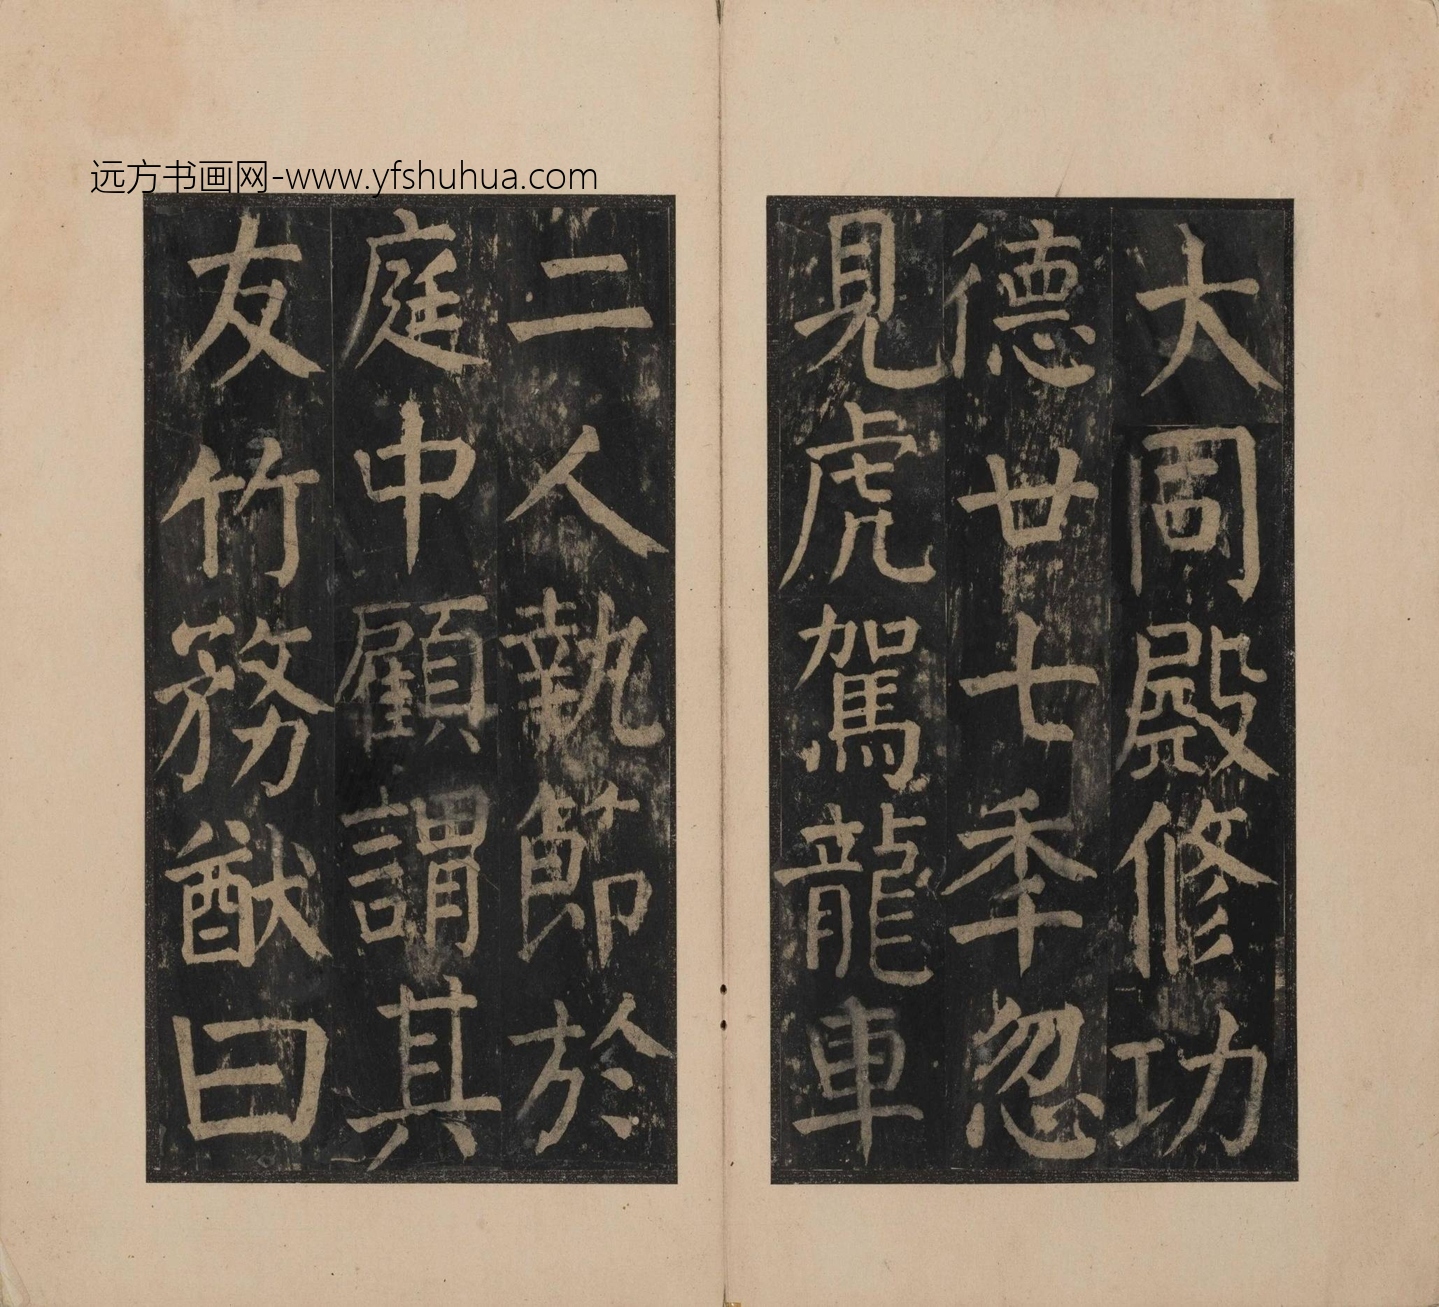 远方书画网-www.yfshuhua.com
大周殿修功
德廿七秊忽
見虎駕龍車
二人執節於
庭中顧謂其
友竹務猷曰